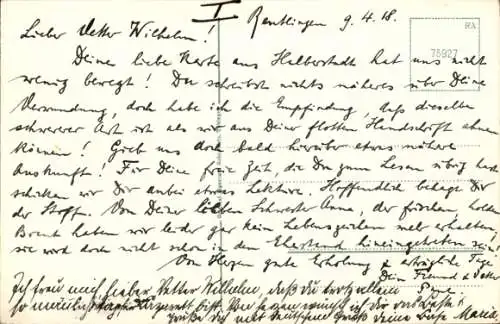 I
Reutlingen 9.4.18.
RA
75927
Lieber Vetter Wilhelm!
Deine liebe Karte aus Halberstadt hat uns nicht
wenig bewegt! Du schreibst nichts näheres über Deine
Verwundung, doch habe ich die Empfindung, daß dieselbe
schwerer Art ist als wir aus Deiner flotten Handschrift ahnen
können! Gieb uns doch bald hierüber etwas nähere
Auskunft! Für Deine freie Zeit, die Du zum Lesen übrig hast
schicken wir Dir anbei etwas Lektüre. Hoffentlich behagt Dir
der Stoff. Von Deiner lieben Schwester Anne, der frischen, holden
Braut haben wir leider gar kein Lebenszeichen mehr erhalten,
sie wird doch nicht schon in den Ehestand hineingetreten sein!
Von Herzen gute Erholung & erträgliche Tage
Dein Freund & Vetter
Ich freu mich lieber Vetter Wilhelm, daß Du
so Lazarett bist. Von ganzem wünsch ich Dir das Beste &
grüße Dich Deine Base Maria